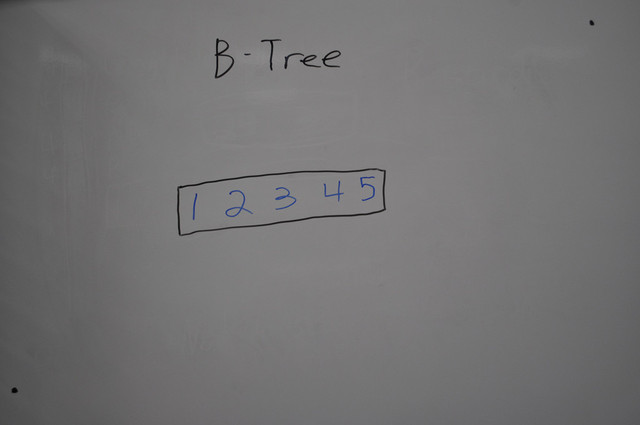 B-Tree
1 2 3 4 5